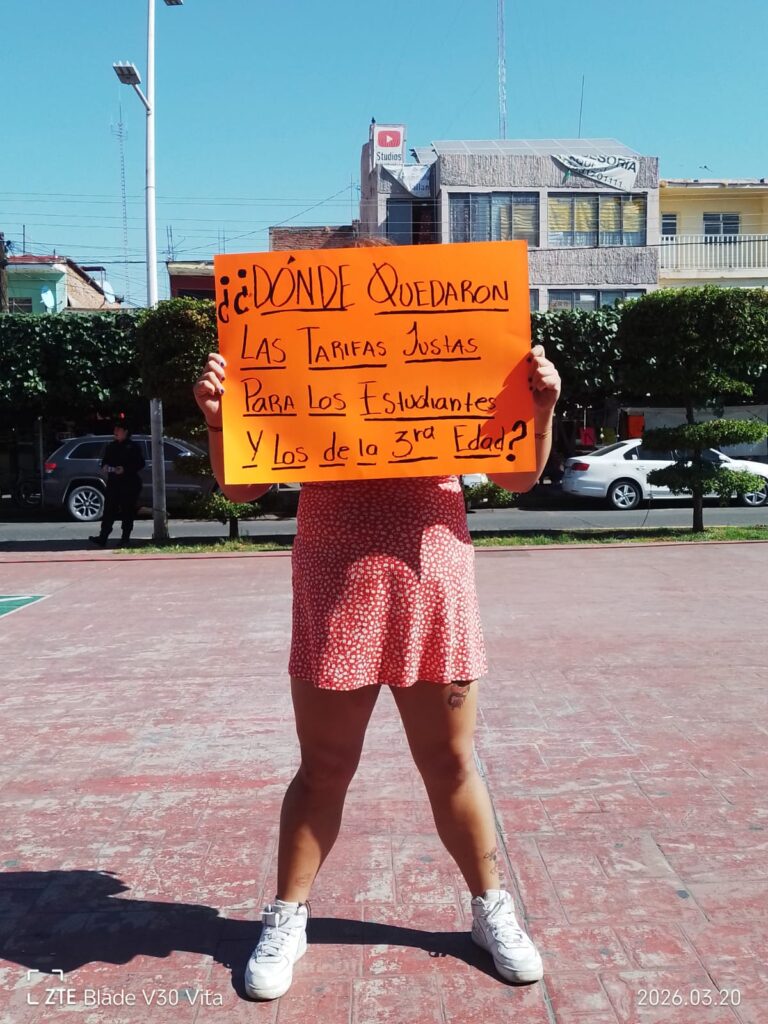 Studios
¿¿DÓNDE QUEDARON
LAS TARIFAS JUSTAS
PARA LOS ESTUDIANTES
Y LOS de la 3ra Edad?
ZTE Blade V30 Vita
2026.03.20